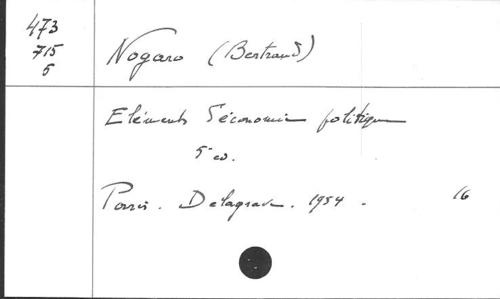 473
715
5
Nogaro (Bertrand)
Eléments d'économie politique
5 éd.
Paris. Delagrave. 1954. 16